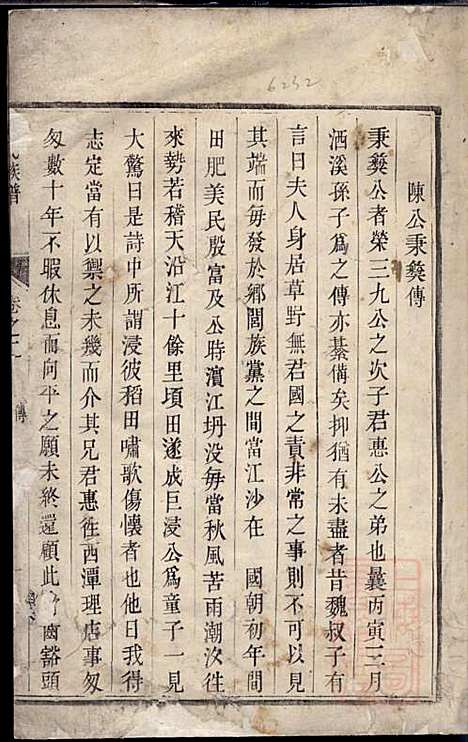 6232
陳公秉彜傳
秉彜公者榮三九公之次子君惠公之弟也曩丙寅三月
洒溪孫子爲之傳亦綦備矣抑猶有未盡者昔魏叔子有
言曰夫人身居草野無君國之責非常之事則不可以見
其端而毎發於鄕閭族黨之間當江沙在 國朝初年間
田肥美民殷富及公時濵江坍没毎當秋風苦雨潮汐徃
來勢若稽天沿江十餘里頃田遂成巨浸公爲童子一見
大驚曰是詩中所謂浸彼稻田嘯歌傷懷者也他日我得
志定當有以禦之未幾而介其兄君惠徃西潭理店事匆
匆數十年不暇休息而向平之願未終還顧此 齒豁頭
族譜
卷之二
傳